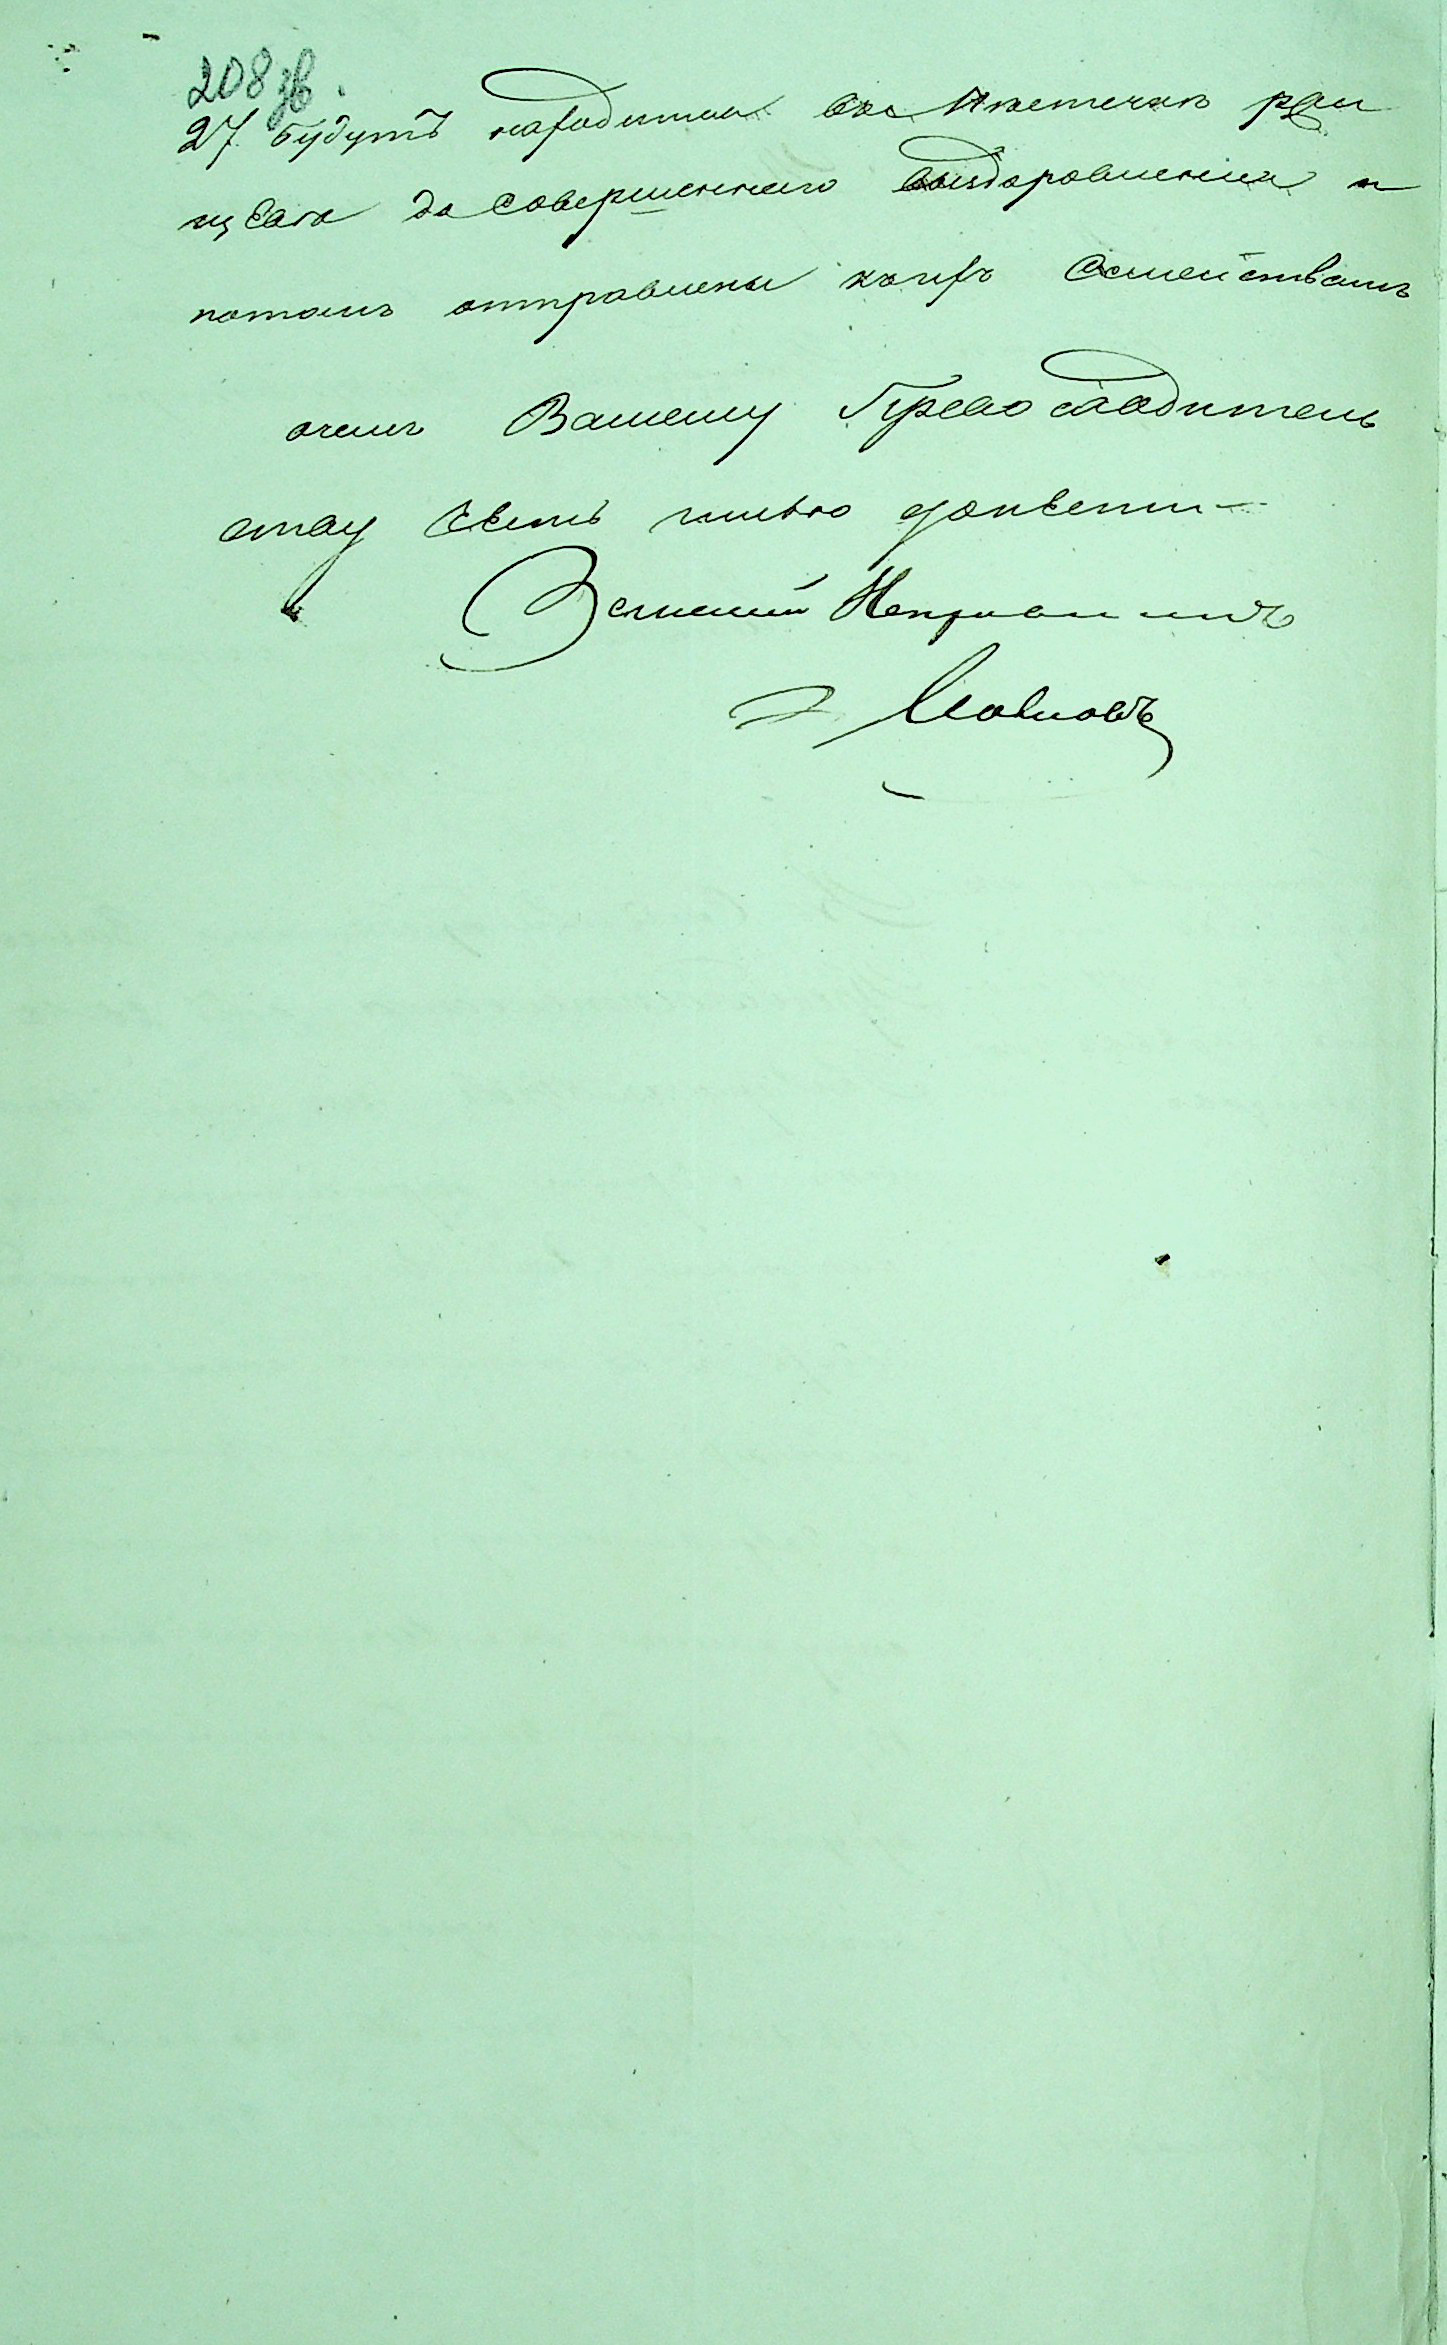 208 зв.
27 будутъ находитца
до совершеннаго выздоровленiя и
потомъ отправлены къихъ Семействамъ
очемъ Вашему Превосходитель
ству Честь имѣю донести
Земскiй Исправникъ